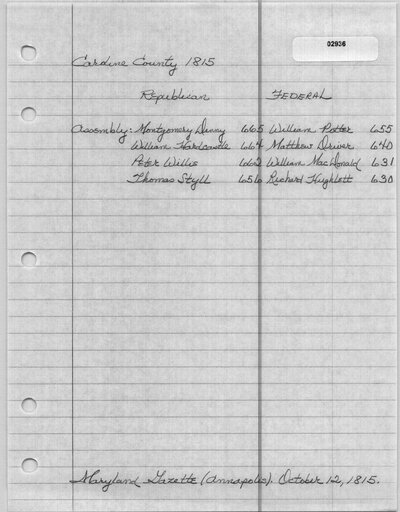 02936
Caroline County 1815
Republican FEDERAL
Assembly: Montgomery Denny 665 William Potter 655
William Hardcastle 664 Matthew Driver 640
Peter Willis 662 William MacDonald 631
Thomas Styll 656 Richard Hughlett 630
Maryland Gazette (Annapolis). October 12, 1815.